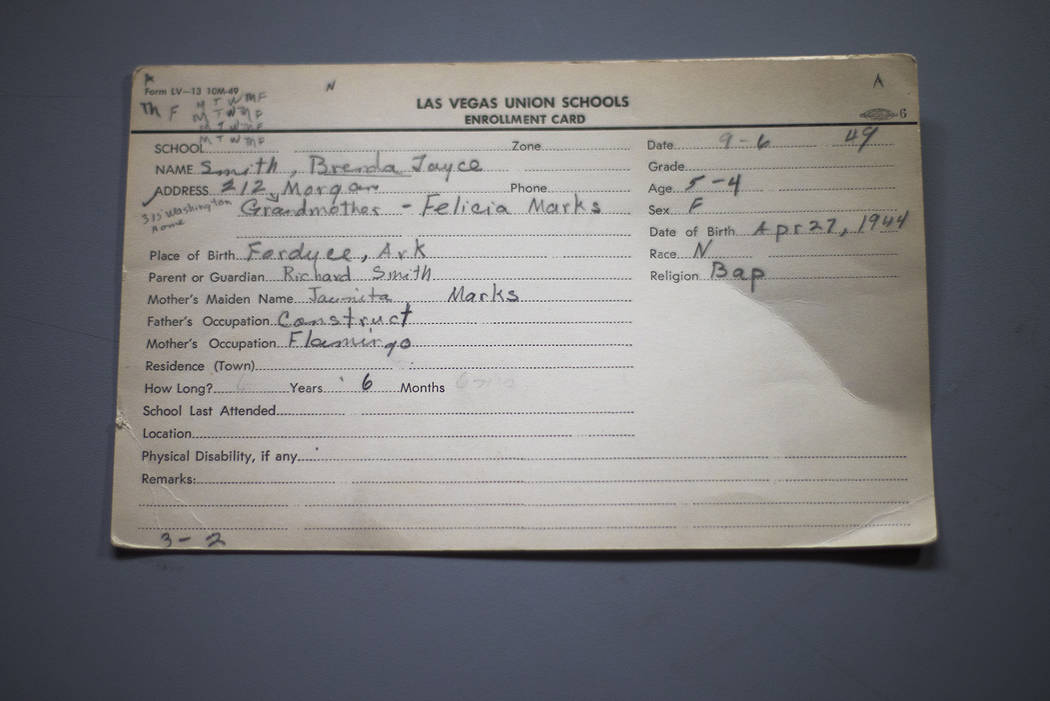 A
Form LV—13 10M-49
N
A
M F M T W M F
M T W M F
M T W M F
M T W M F
LAS VEGAS UNION SCHOOLS
ENROLLMENT CARD
6
SCHOOL Zone Date 9-6 49
NAME Smith, Brenda Jayce Grade
ADDRESS 212 Morgan Phone Age 5-4
315 Washington
Home
Grandmother - Felicia Marks Sex F
Date of Birth Apr 27, 1944
Place of Birth Fordyce, Ark Race N
Parent or Guardian Richard Smith Religion Bap
Mother's Maiden Name Jaunita Marks
Father's Occupation Construct
Mother's Occupation Flamingo
Residence (Town)
How Long? Years 6 Months
School Last Attended
Location
Physical Disability, if any
Remarks:
3-2